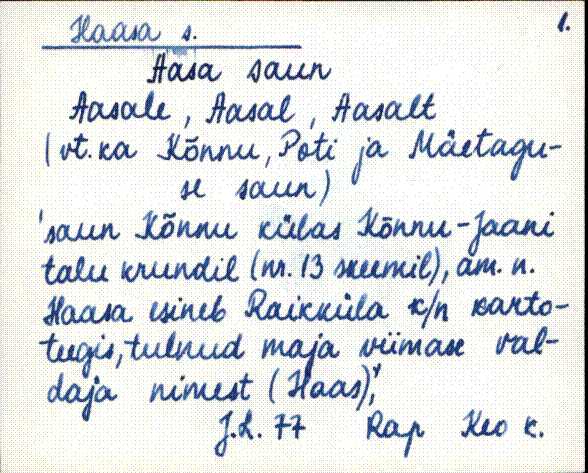 Haasa s.
1.
Aasa saun
Aasale, Aasal, Aasalt
(vt. ka Kõnnu, Poti ja Mäetagu-
se saun)
'saun Kõnnu külas Kõnnu-Jaani
talu krundil (nr. 13 skeemil), am. n.
Haasa esineb Raikküla k/n karto-
teegis, tulnud maja viimase val-
daja nimest (Haas)',
J.L. 77 Rap Keo k.